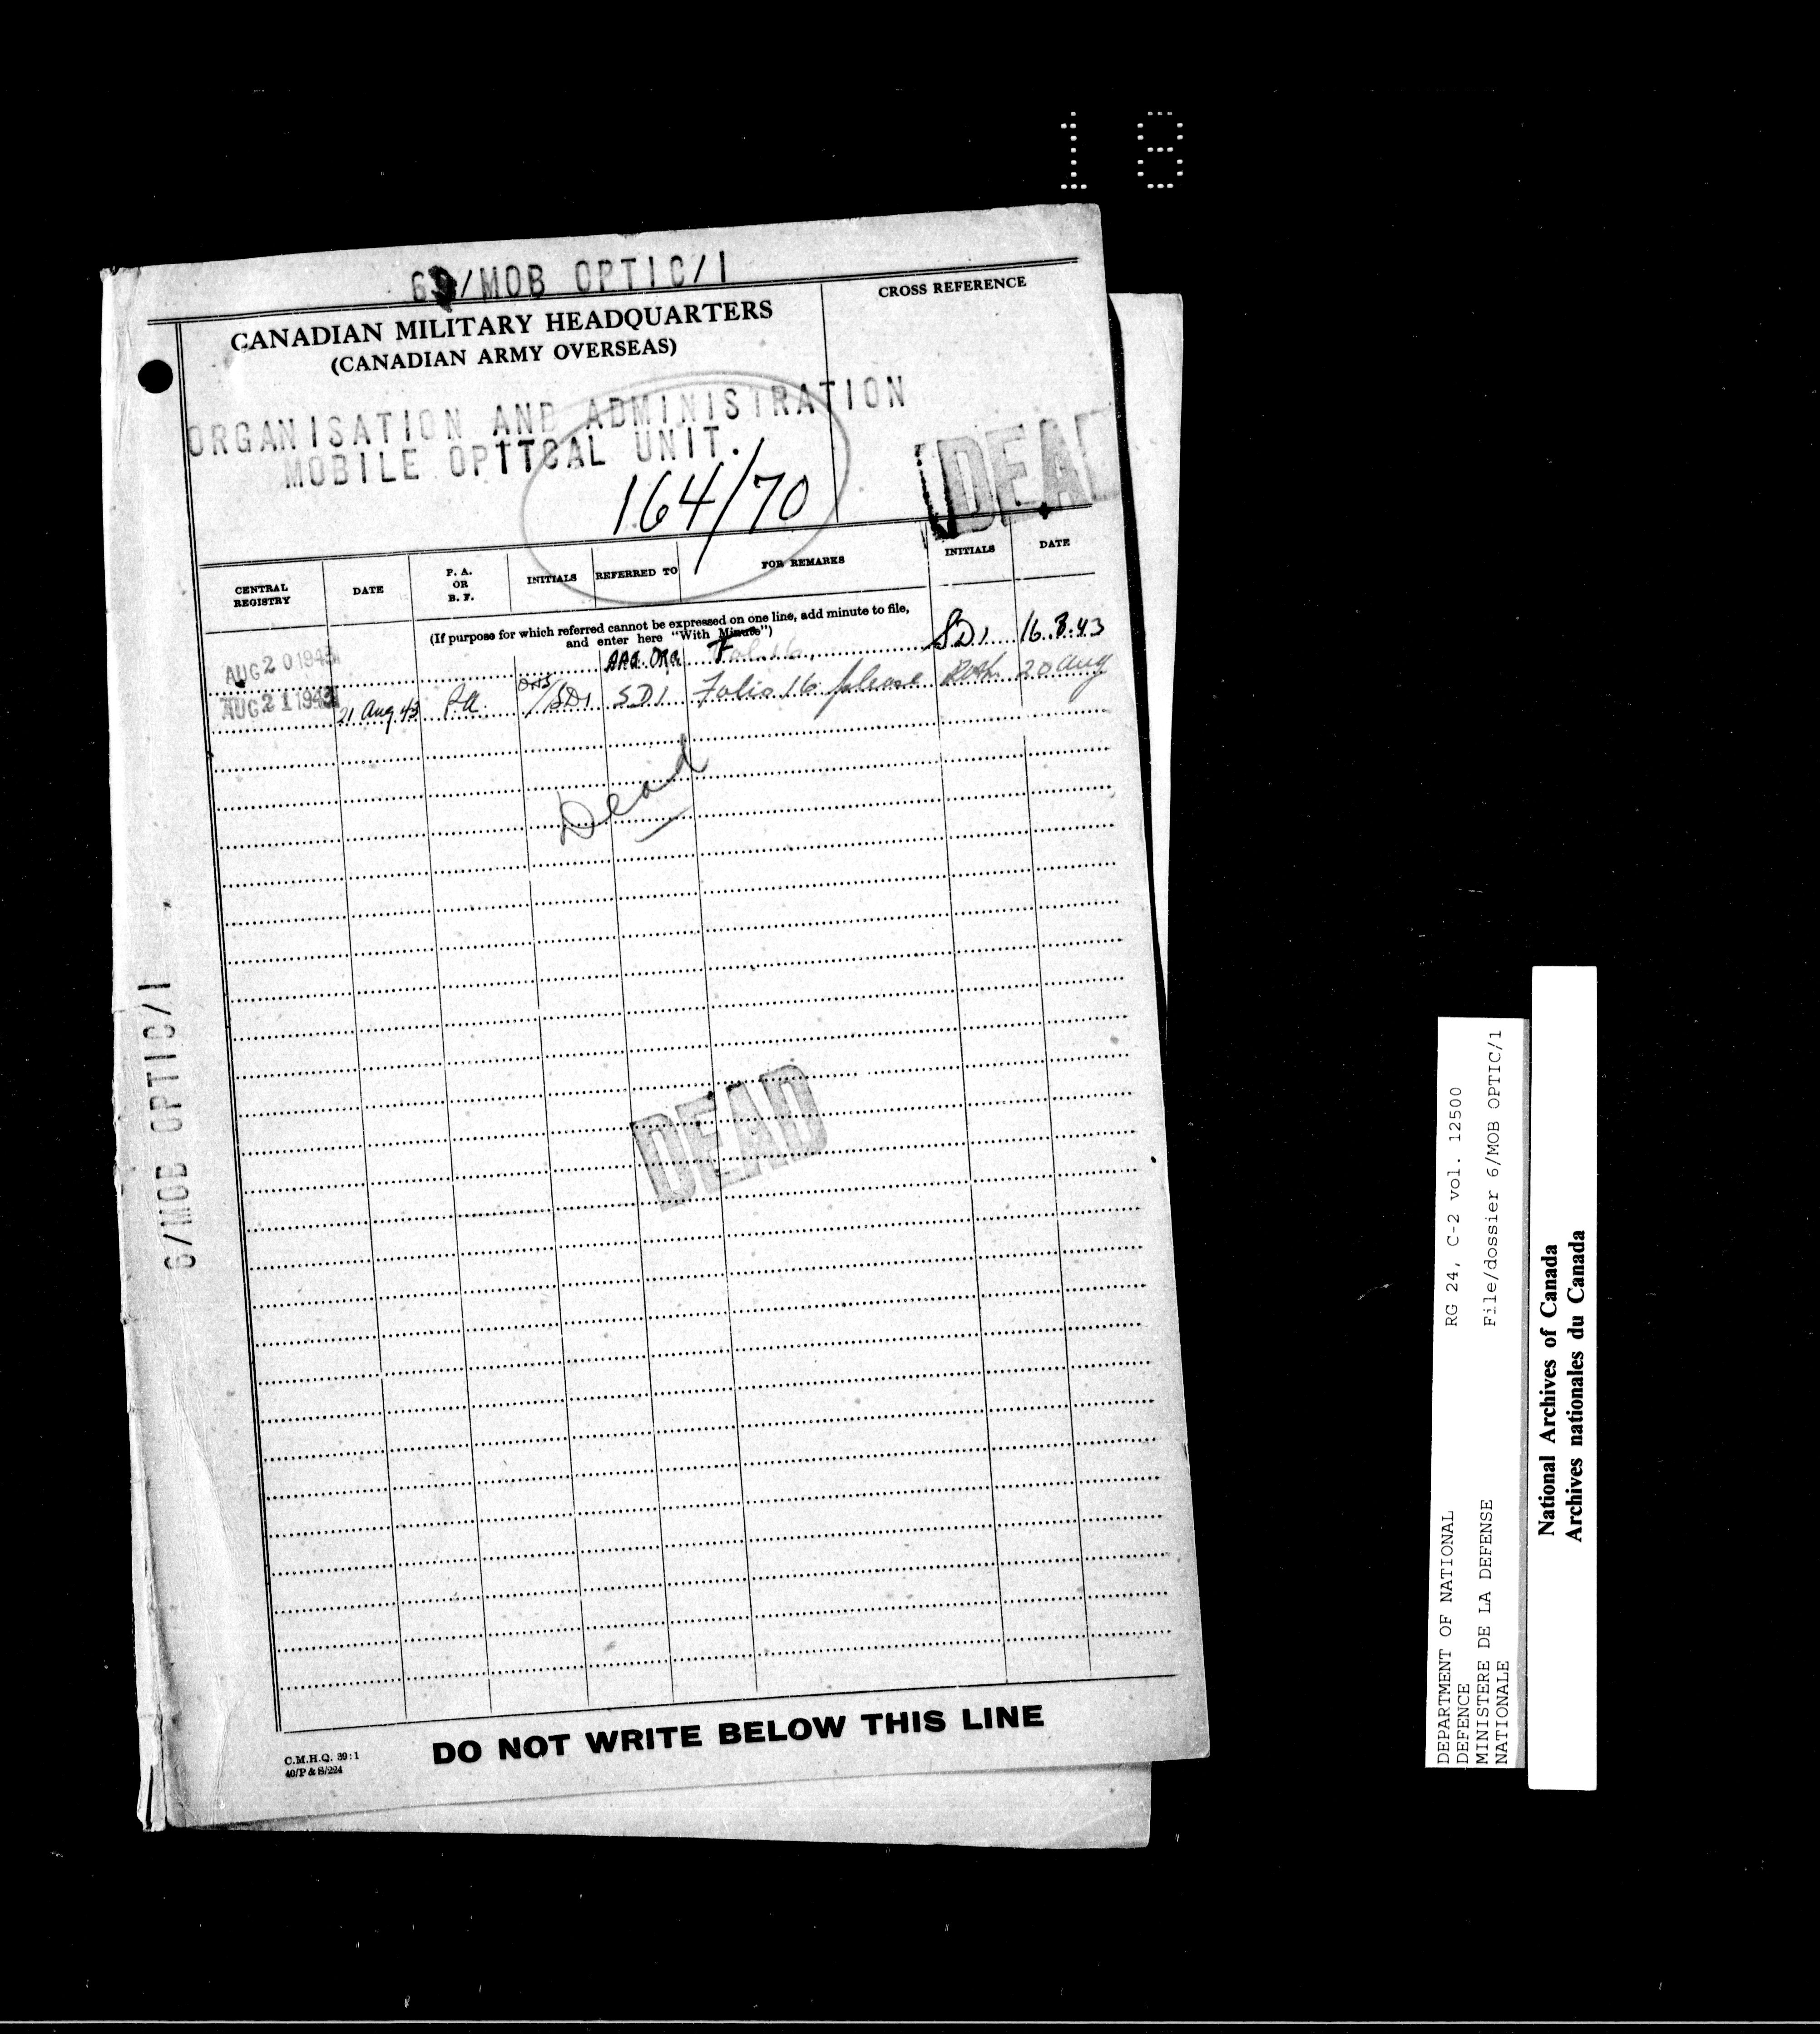 18
6/MOB OPTIC/1
CANADIAN MILITARY HEADQUARTERS
(CANADIAN ARMY OVERSEAS)
CROSS REFERENCE
ORGANISATION AND ADMINISTRATION
MOBILE OPTICAL UNIT.
164/70
DEAD
CENTRAL REGISTRY
DATE
P. A. OR B. F.
INITIALS
REFERRED TO
FOR REMARKS
INITIALS
DATE
(If purpose for which referred cannot be expressed on one line, add minute to file,
and enter here "With Minute")
AUG 20 1943 AAG. Org Fol. 16. SD1 16.8.43
AUG 21 1943 21 Aug 43 PA. /SD1 SD1 Folio 16 please 20 Aug
Dead
DEAD
6/MOB OPTIC/1
DO NOT WRITE BELOW THIS LINE
C.M.H.Q. 39:1
40/P & S/224
DEPARTMENT OF NATIONAL
DEFENCE
MINISTERE DE LA DEFENSE
NATIONALE
RG 24, C-2 vol. 12500
File/dossier 6/MOB OPTIC/1
National Archives of Canada
Archives nationales du Canada